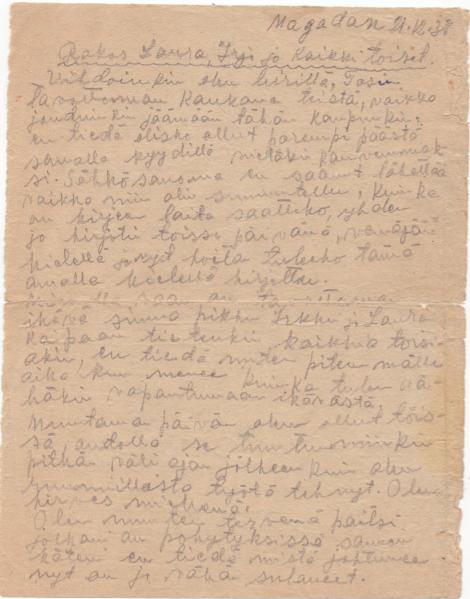 Magadan 21.12.38
Rakas Laura, Irji ja kaikki toiset.
Vihdoinkin olen perillä, Tosin
tavattoman kaukana teistä, vaikka
jouduinkin jäämään tähän kaupunkiin,
en tiedä olisiko ollut parempi päästä
samalla kyydillä vieläkin kauvemmak-
si. Sähkösanoma en saanut lähettää
vaikka niin olin suunnitellu, kuinka
on kirjeen laita saattiko, yhden
jo kirjitin toissa päivänä, venäjän
kielellä ja nyt koitan tuleeko tämä
omalla kielellä kirjottu.
on
ikävä sinua pikku Irkku ja Laura
Kapaan tietenkin kaikkia toisi-
akin, en tiedä miten pitem mälle
aika kun menee kuinka tulen
vapautumaan ikävästä.
Muutaman päivän olen ollut töis-
sä, oudolla se tuntuu niinkin
pitkän väli ajan jälkeen kun olen
työtä tehnyt. Olen
hirves miehenä.
Olen muuten terveenä paitsi
jalkani on pöhötyksissä samoin
käteni en tiedä mistä johtunee
nyt on jo vähä sulaneet.